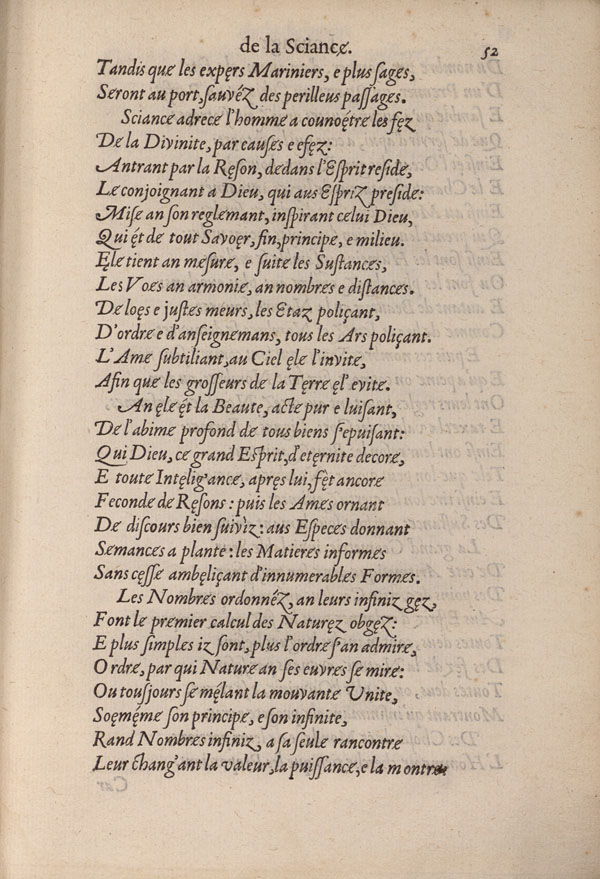 de la Sciancę.
52
Tandis que les expęrs Mariniers, e plus sages,
Seront au port, sauvéz des perilleus passages.
Sciance adrece l'homme a counoétre les fęz
De la Divinite, par causes e efęz:
Antrant par la Ręson, dedans l'Esprit reside,
Le conjoignant a Dieu, qui aus Espriz preside:
Mise an son reglemant, inspirant celui Dieu,
Qui ét de tout Savoęr, fin, principe, e milieu.
Ęle tient an mesure, e suite les Sustances,
Les Voęs an armonie, an nombres e distances.
De loęs e justes meurs, les Etaz poliçant,
D'ordre e d'anseignemans, tous les Ars poliçant.
L'Ame subtiliant, au Ciel ęle l'invite,
Afin que les grosseurs de la Tęrre ęl' evite.
An ęle ét la Beaute, acte pur e luisant,
De l'abime profond de tous biens s'epuisant:
Qui Dieu, ce grand Esprit, d'eternite decore,
E toute Intęlig'ance, apręs lui, fęt ancore
Feconde de Ręsons: puis les Ames ornant
De discours bien suiviz: aus Especes donnant
Semances a plante: les Matieres informes
Sans cęsse ambęliçant d'innumerables Formes.
Les Nombres ordonnéz, an leurs infiniz gęz,
Font le premier calcul des Naturęz obgęz:
E plus simples iz sont, plus l'ordre s'an admire,
Ordre, par qui Nature an ses euvres se mire:
Ou tousjours se męlant la mouvante Unite,
Soęméme son principe, e son infinite,
Rand Nombres infiniz, a sa seule rancontre
Leur chang'ant la valeur, la puissance, e la montre
Car